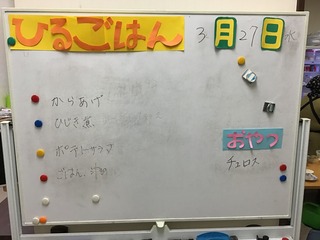 ひるごはん
3月27日 水
からあげ
ひじき煮
ポテトサラダ
ごはん、汁物
おやつ
チュロス